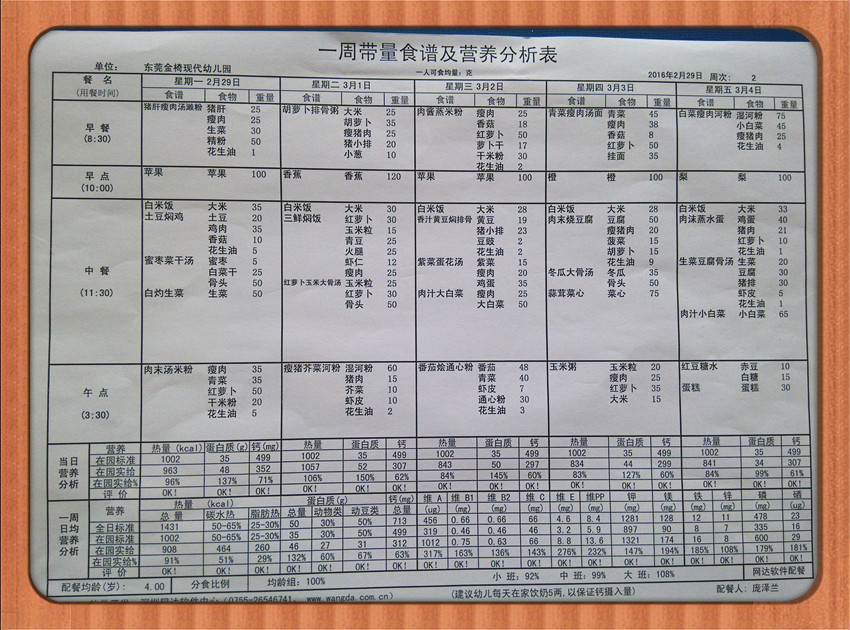 一周带量食谱及营养分析表
单位: 东莞金椅现代幼儿园 一人可食均量:克 2016年2月29日 周次: 2
餐 名 (用餐时间) 星期一 2月29日 星期二 3月1日 星期三 3月2日 星期四 3月3日 星期五 3月4日
食谱 食物 重量 食谱 食物 重量 食谱 食物 重量 食谱 食物 重量 食谱 食物 重量
早 餐 (8:30)
猪肝瘦肉汤濑粉 猪肝 25 胡萝卜排骨粥 大米 35 肉酱蒸米粉 瘦肉 25 青菜瘦肉汤面 青菜 45 白菜瘦肉河粉 湿河粉 75
瘦肉 25 胡萝卜 35 香菇 18 瘦肉 38 小白菜 45
生菜 30 瘦猪肉 25 红萝卜 50 香菇 8 瘦猪肉 25
精粉 50 猪小排 20 萝卜干 17 红萝卜 50 花生油 4
花生油 1 小葱 10 干米粉 30 挂面 35
花生油 2
早 点 (10:00) 苹果 苹果 100 香蕉 香蕉 120 苹果 苹果 100 橙 橙 100 梨 梨 100
中 餐 (11:30)
白米饭 大米 35 白米饭 大米 30 白米饭 大米 28 白米饭 大米 28 白米饭 大米 33
土豆焖鸡 土豆 20 三鲜焖饭 红萝卜 30 香汁黄豆焖排骨 黄豆 19 肉末烧豆腐 豆腐 50 肉沫蒸水蛋 鸡蛋 40
鸡肉 35 玉米粒 15 猪小排 23 瘦猪肉 20 猪肉 21
香菇 10 青豆 25 豆豉 2 菠菜 15 红萝卜 10
花生油 5 火腿 25 花生油 2 胡萝卜 15 花生油 1
蜜枣菜干汤 蜜枣 5 虾仁 12 紫菜蛋花汤 紫菜 15 花生油 9 生菜豆腐骨汤 生菜 20
白菜干 25 瘦肉 25 瘦肉 20 冬瓜大骨汤 冬瓜 35 豆腐 30
骨头 50 红萝卜玉米大骨汤 玉米粒 25 鸡蛋 35 骨头 50 猪排 30
白灼生菜 生菜 50 红萝卜 30 肉汁大白菜 瘦肉 25 蒜茸菜心 菜心 75 虾皮 5
骨头 50 大白菜 50 花生油 1
肉汁小白菜 小白菜 65
午 点 (3:30)
肉末汤米粉 瘦肉 35 瘦猪芥菜河粉 湿河粉 60 番茄烩通心粉 番茄 48 玉米粥 玉米粒 20 红豆糖水 赤豆 10
青菜 35 猪肉 15 青菜 40 瘦肉 25 白糖 15
红萝卜 50 芥菜 10 虾皮 7 红萝卜 35 蛋糕 蛋糕 30
干米粉 20 虾皮 10 通心粉 30 大米 15
花生油 5 花生油 2 花生油 3
当日营养分析 营养 热量(kcal) 蛋白质(g) 钙(mg) 热量 蛋白质 钙 热量 蛋白质 钙 热量 蛋白质 钙 热量 蛋白质 钙
在园标准 1002 35 499 1002 35 499 1002 35 499 1002 35 499 1002 35 499
在园实给 963 48 352 1057 52 307 843 50 297 834 44 299 841 34 307
在园实给% 96% 137% 71% 106% 150% 62% 84% 145% 60% 83% 127% 60% 84% 99% 61%
评 价 OK! OK! OK! OK! OK! OK! OK! OK! OK! OK! OK! OK! OK! OK! OK!
一周日均营养分析 营养 热量 (kcal) 蛋白质(g) 钙(mg) 维 A 维 B1 维 B2 维 C 维 E 维PP 钾 镁 铁 锌 磷 硒
总 量 碳水热 脂肪热 总量 动物类 动豆类 总量 (ug) (mg) (mg) (mg) (mg) (mg) (mg) (mg) (mg) (mg) (mg) (ug)
全日标准 1431 50-65% 25-30% 50 30% 50% 713 456 0.66 0.66 66 4.6 8.4 1281 128 12 11 478 23
在园标准 1002 50-65% 25-30% 35 30% 50% 499 319 0.46 0.46 46 3.2 5.9 897 90 8 7 335 16
在园实给 908 464 260 46 27 31 312 1012 0.75 0.63 66 8.8 13.6 1321 174 16 8 600 29
在园实给% 91% 51% 29% 132% 60% 67% 63% 317% 163% 136% 143% 276% 232% 147% 194% 185% 108% 179% 181%
评 价 OK! OK! OK! OK! OK! OK! OK! OK! OK! OK! OK! OK! OK! OK! OK! OK! OK! OK! OK!
配餐均龄(岁): 4.00 分食比例 均龄组:100% 小 班:92% 中 班:99% 大 班:108% 网达软件配餐
(0755-26546741, www.wangda.com.cn) (建议幼儿每天在家饮奶5两,以保证钙摄入量) 配餐人:庞泽兰